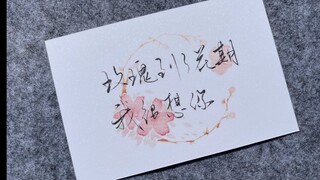 玫瑰到了花期
我很想你